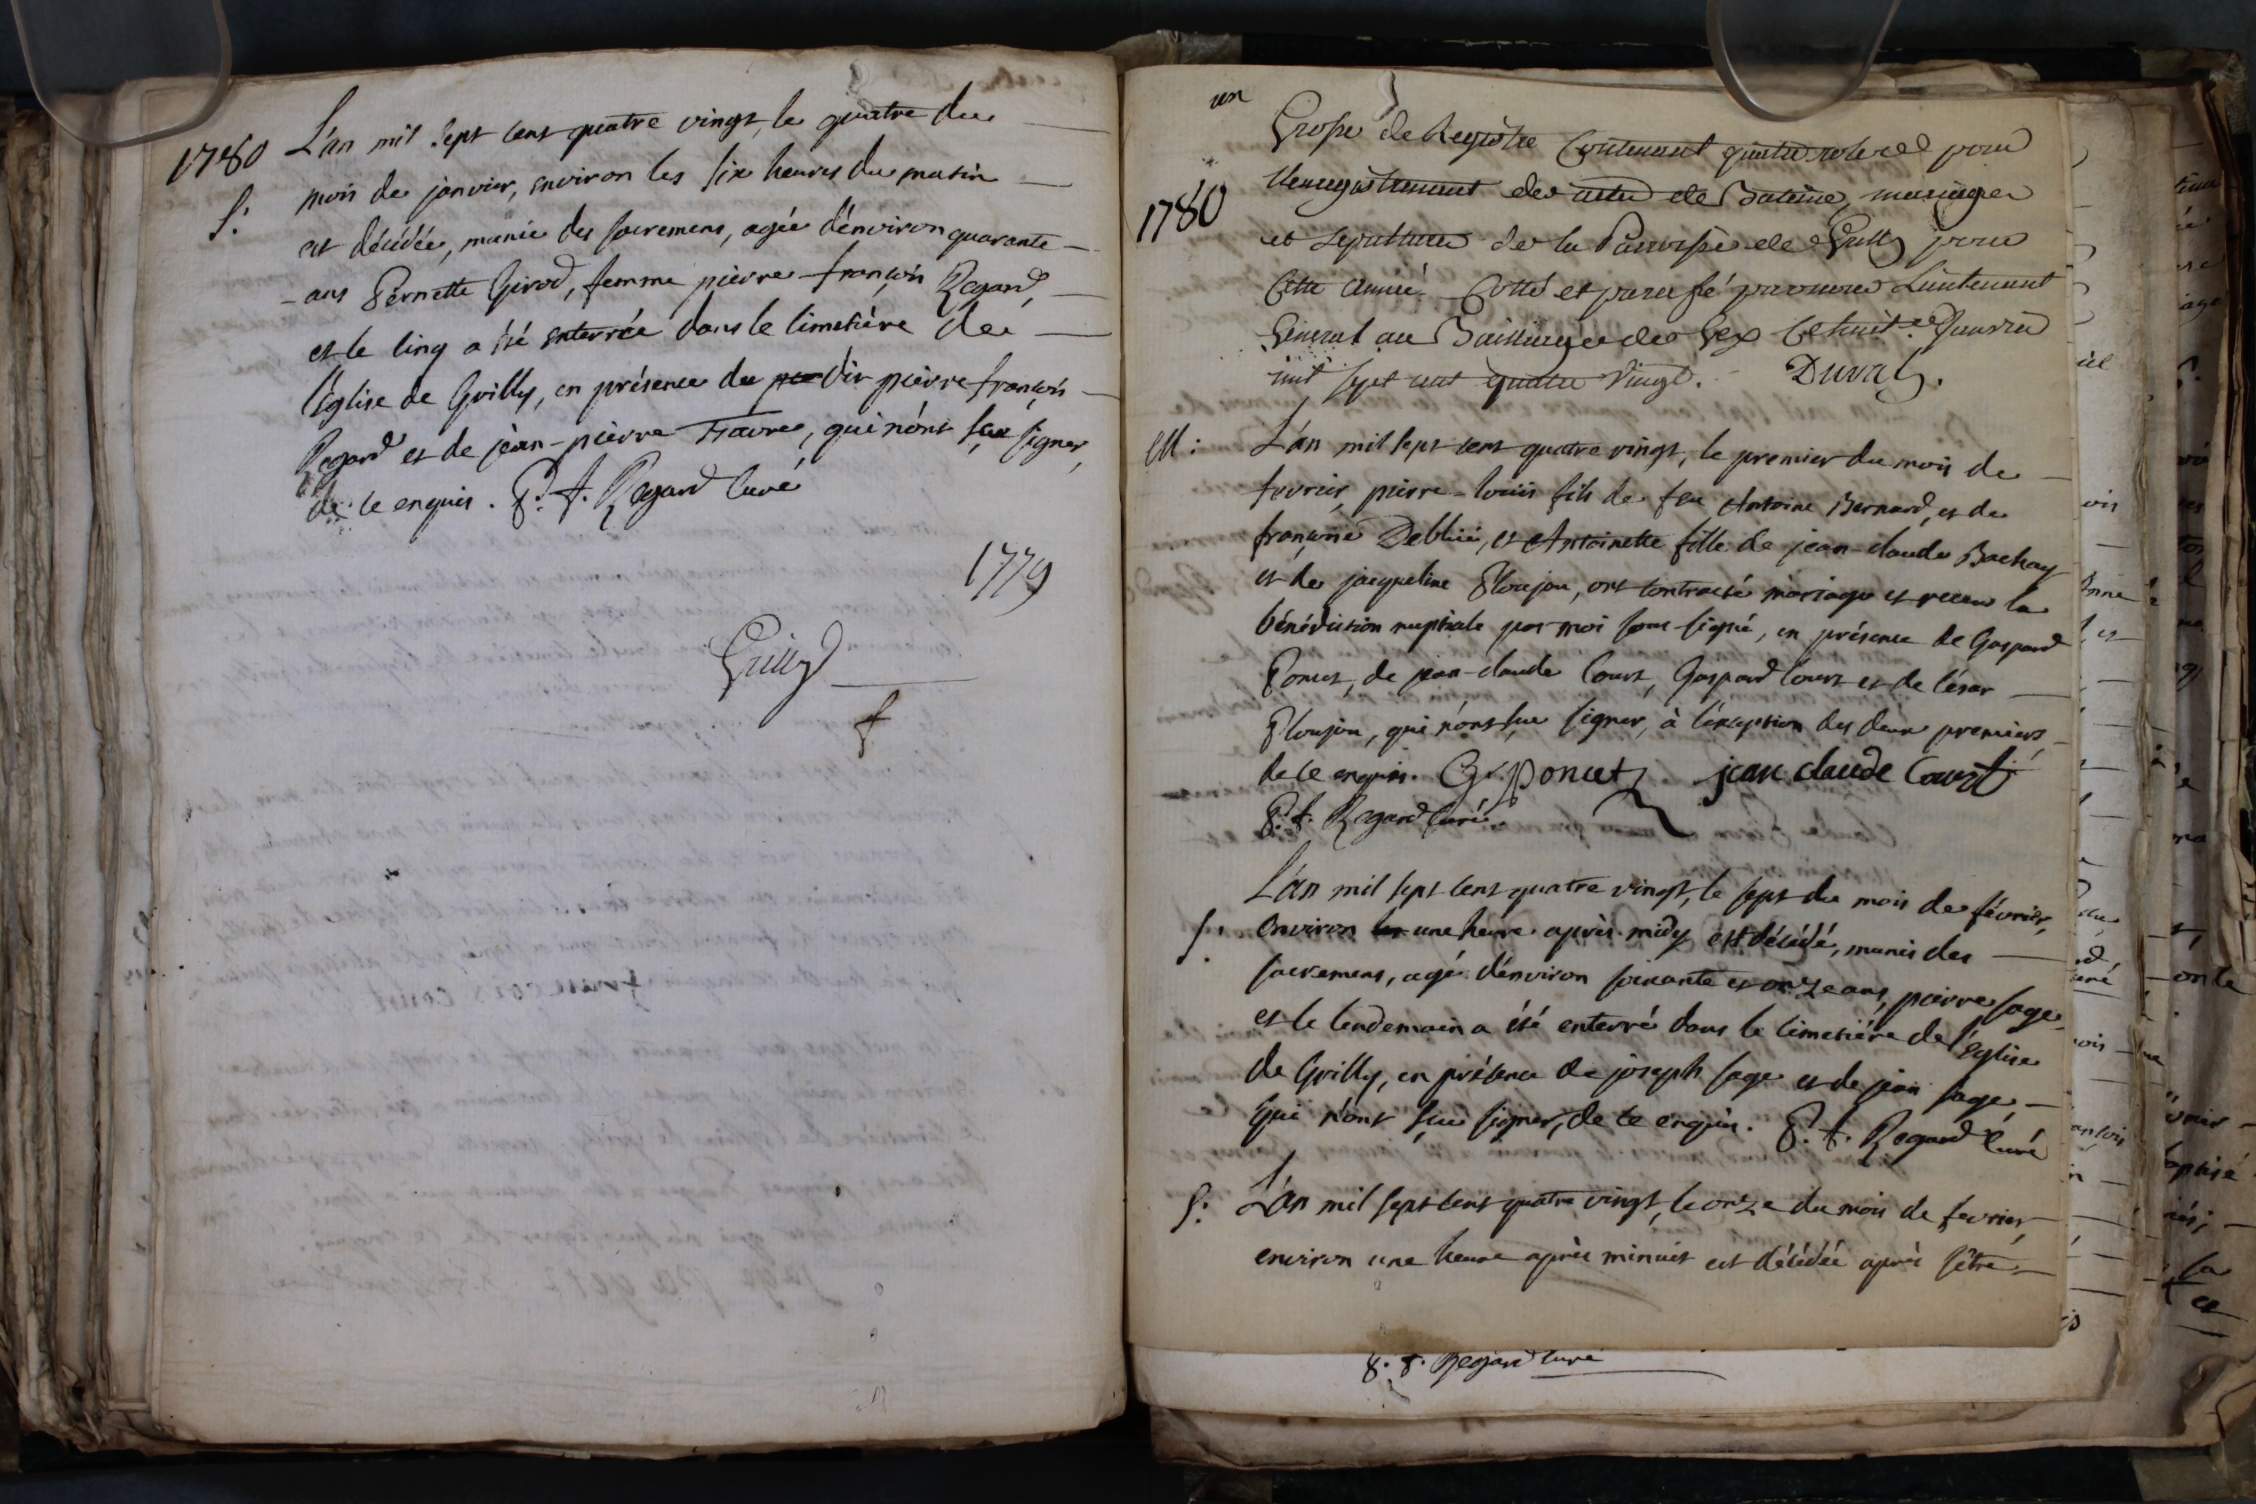 1780
L'an mil sept cent quatre vingt, le quatre du
S: mois de janvier, environ les six heures du matin
est décédée, munie des sacremens, agée d'environ quarante
ans Pernette Girod, femme pierre françois Regard,
et le cinq a été enterrée dans le cimetière de
l'église de Grilly, en présence du dit pierre françois
Regard et de jean-pierre Favre, qui n'ont sçu signer,
de ce enquis. P. f. Regard Curé
1779
Grilly
un
Grosse de Registre Contenant quatre roles pour
1780
l'enregistrement des actes de Bateme, mariages
et sepulture de la Parroisse de Grilly pour
Cette année Cotté et paraffé par nous Lieutenant
General au Bailliage de Gex Ce huit Janvier
mil sept cent quatre vingt. Duval.
M: L'an mil sept cent quatre vingt, le premier du mois de
fevrier, pierre-louis fils de feu Antoine Bernard, et de
françoise, et Antoinette fille de jean-claude Bachay
et de jacqueline Ploujou, ont contracté mariage et receu la
bénédiction nuptiale par moi sous-signé, en présence de Gaspard
Poncet, de jean-claude Court, Gaspard Court et de César
Ploujou, qui n'ont sçu signer, à l'exception des deux premiers,
de ce enquis. G. poncet jean claude Court
P. f. Regard Curé.
L'an mil sept cent quatre vingt, le sept du mois de février,
S. environ une heure après midy est décédé, munis des
sacremens, agé d'environ soixante et onze ans, pierre sage
et le lendemain a été enterré dans le cimetière de l'église
de Grilly, en présence de joseph sage et de jean sage,
qui n'ont sçu signer, de ce enquis. P. f. Regard Curé
S: L'an mil sept cent quatre vingt, le onze du mois de fevrier,
environ une heure après minuit est décédée après s'être
P. f. Regard Curé